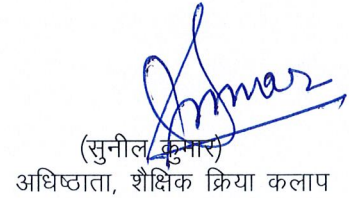 (सुनील कुमार)
अधिष्ठाता, शैक्षिक क्रिया कलाप